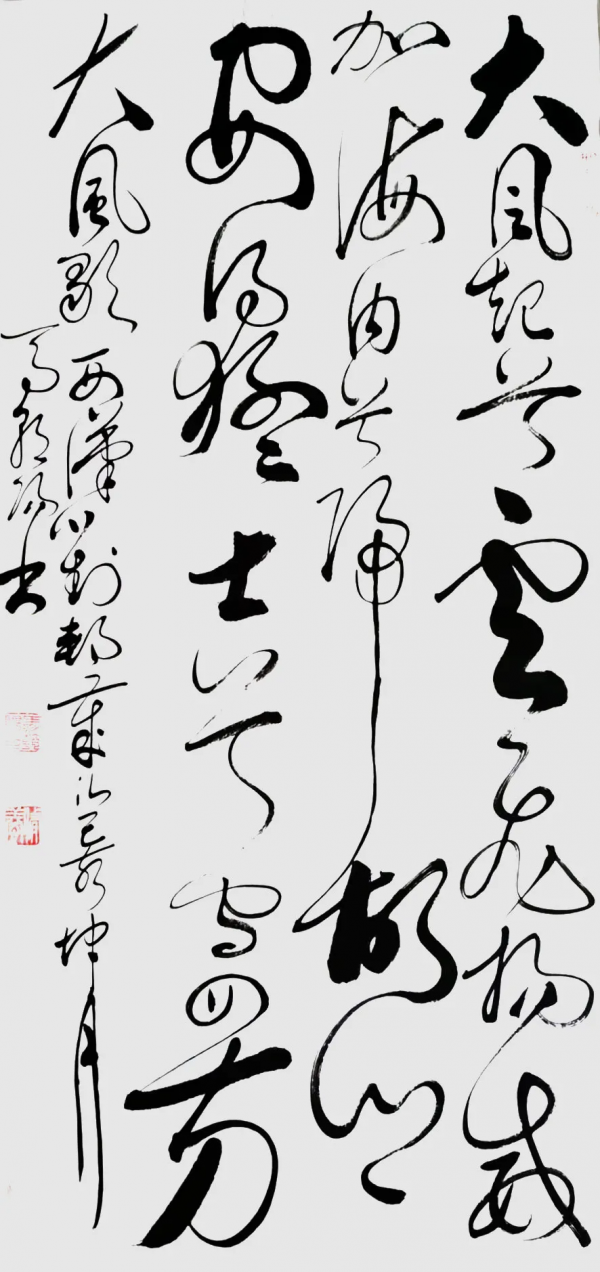 大風起兮雲飛揚威
加海内兮歸故鄉
安得猛士兮守四方
大風歌 西漢 劉邦 歲次己亥坤月
書